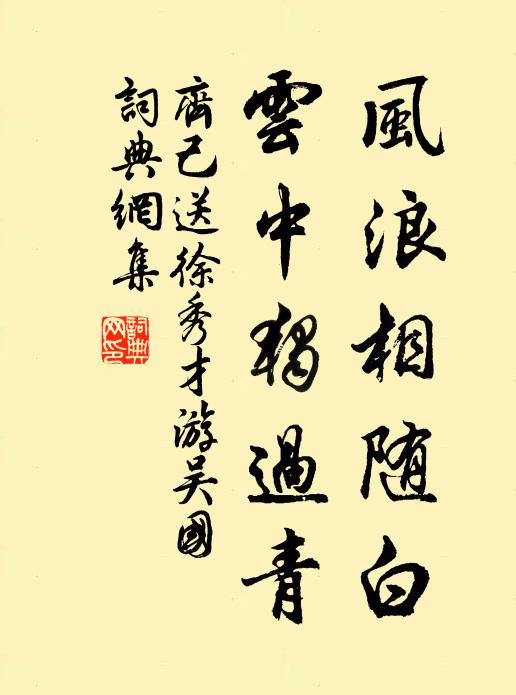 風浪相随白
雲中獨過青
齊己送徐秀才游吴國
詞典網集
詞典
网印